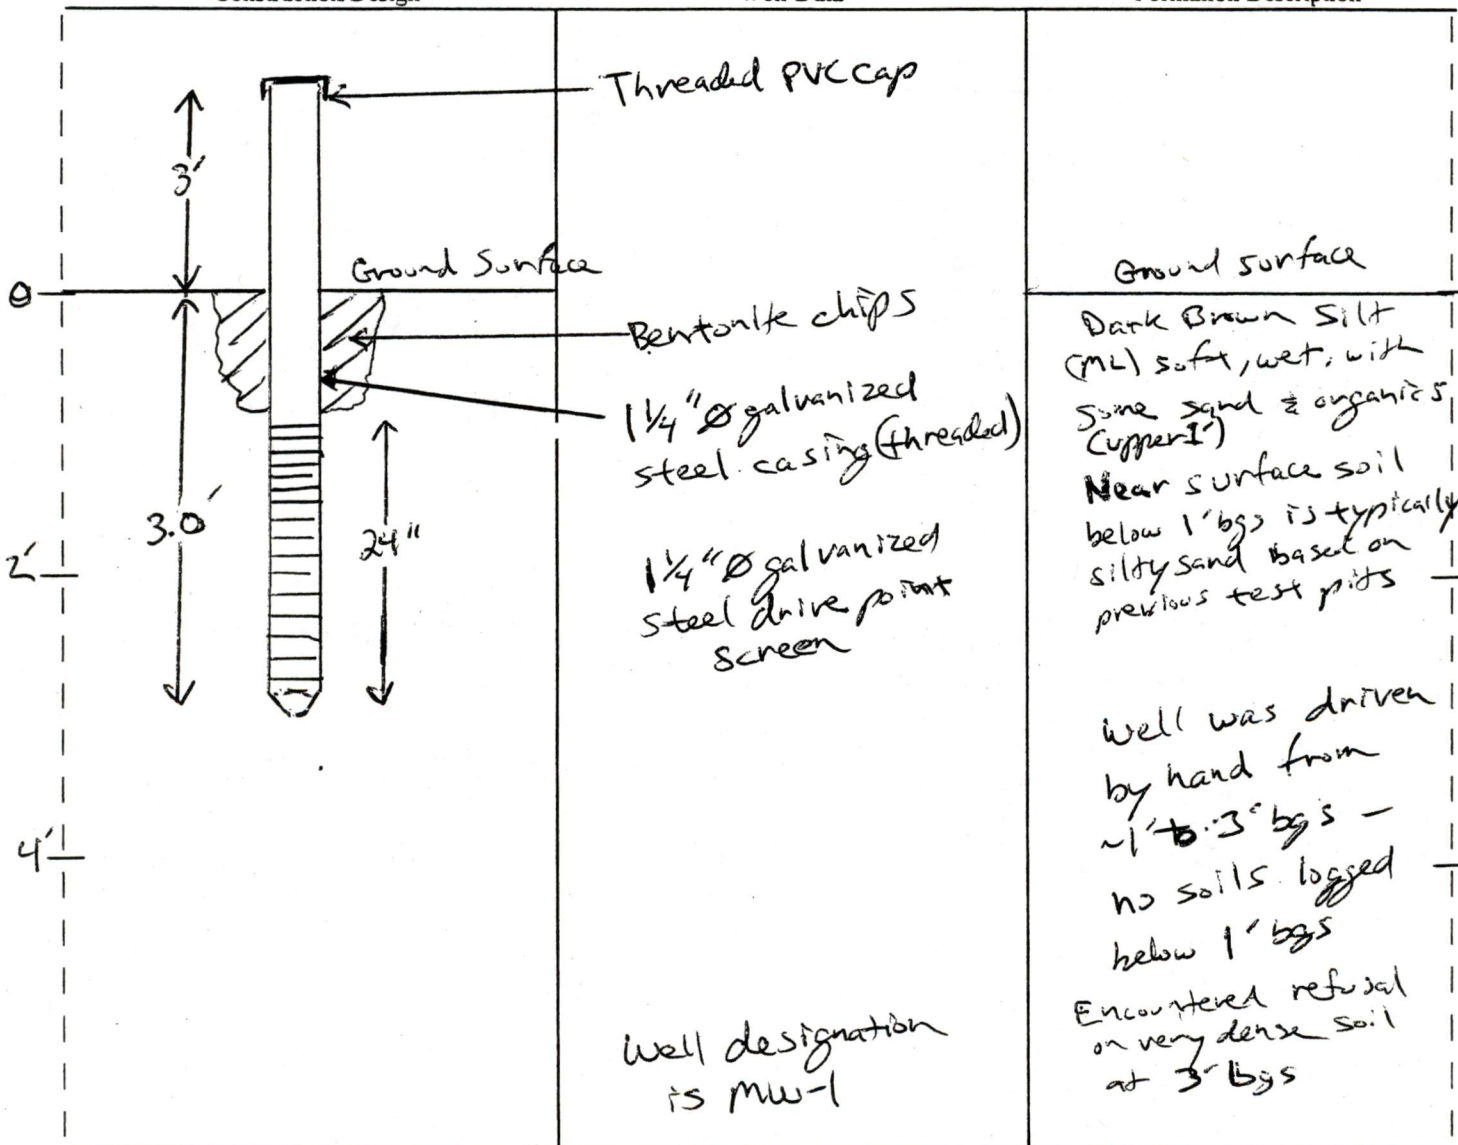 Threaded PVC cap
3'
Ground Surface
0
Bentonite chips
1 1/4" Ø galvanized
steel casing (threaded)
3.0'
24"
2'
1 1/4" Ø galvanized
steel drive point
screen
4'
Well designation
is MW-1
Ground surface
Dark Brown Silt
(ML) soft, wet, with
some sand & organics
(upper 1')
Near surface soil
below 1' bgs is typically
silty sand based on
previous test pits
Well was driven
by hand from
~1' to 3' bgs –
no soils logged
below 1' bgs
Encountered refusal
on very dense soil
at 3' bgs